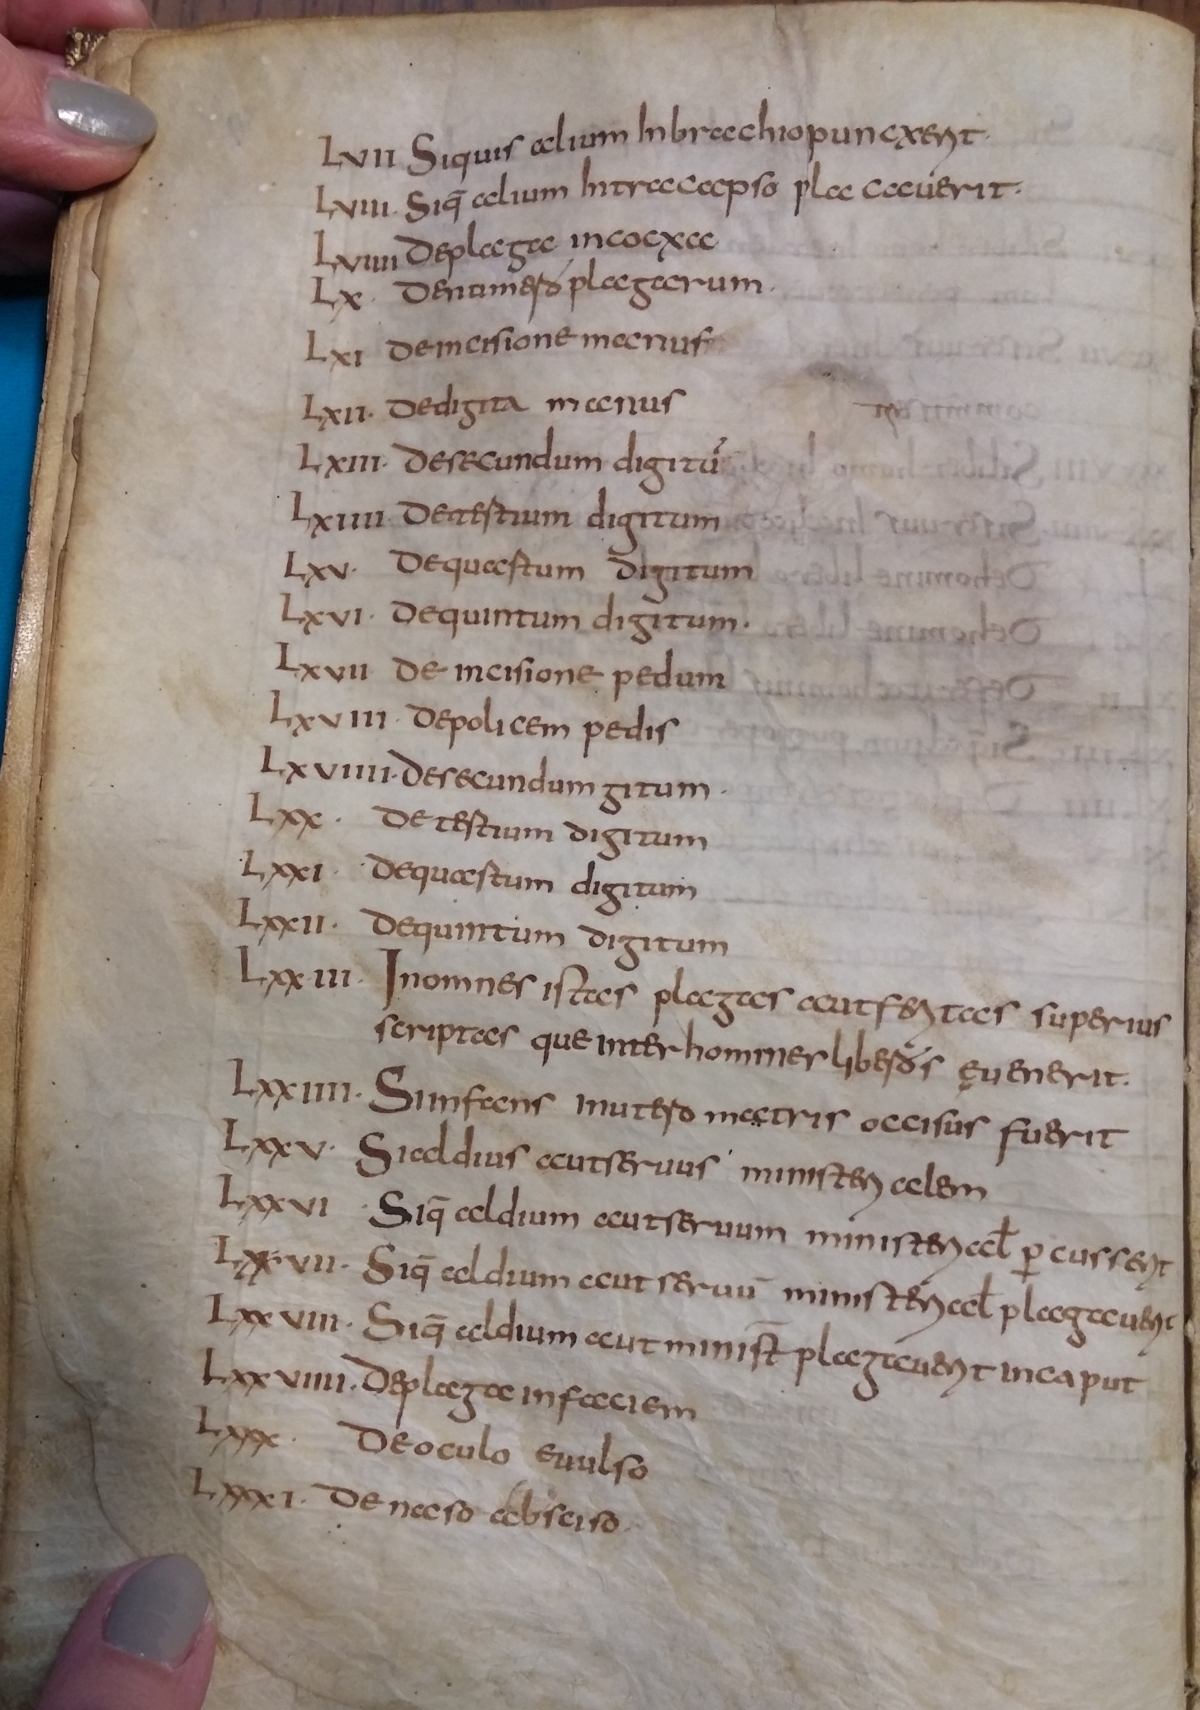 LVII Siquis alium inbrachiopuncxerit.
LVIII. Siq̄ alium Intra capso pla cauerit.
LVIIII Deplaga incocxa
LX. Denumero plagarum.
LXI Deincisione manus
LXII. Dedigita manus
LXIII. Desecundum digitū
LXIIII. Detestium digitum
LXV. Dequastum digitum
LXVI. Dequintum digitum.
LXVII De incisione pedum
LXVIII. Depolicem pedis
LXVIIII. Desecundum gitum.
LXX. De testium digitum
LXXI. Dequastum digitum
LXXII. Dequintum digitum
LXXIII. Inomnes istas plagas autferitas superius
scriptas que inter homines liberos ęuenerit.
LXXIIII. Siinfans inutero matris occisus fuerit
LXXV. Sialdius autseruus ministerialem
LXXVI Siq̄ aldium autseruum ministerial̄ ꝑcusserit
LXXVII. Siq̄ aldium aut seruū ministerial̄ plagauerit
LXXVIII. Siq̄ aldium aut minist̄ plagauerit incaput
LXXVIIII. Deplaga infaciem
LXXX. De oculo euulso
LXXXI. De naso absciso.